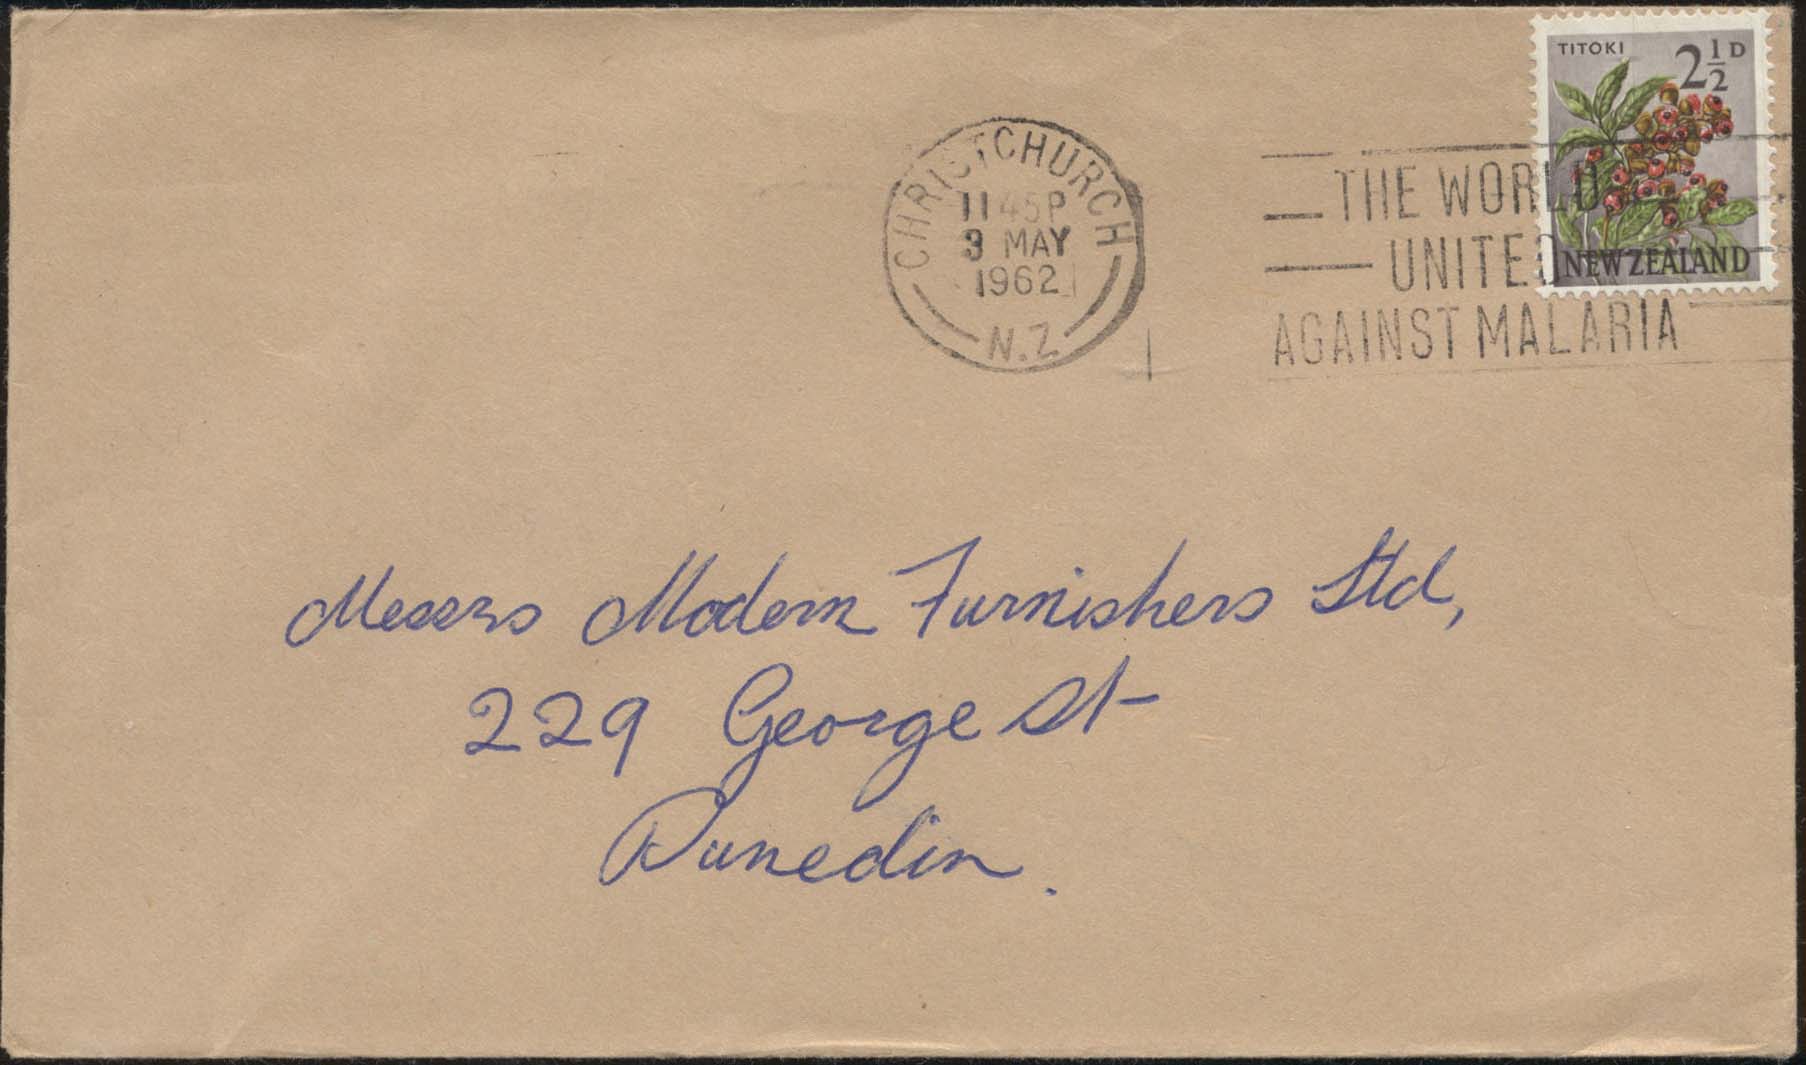 TITOKI 2½D
NEW ZEALAND
CHRISTCHURCH
11 45P
3 MAY
1962
N.Z.
THE WORLD
UNITED
AGAINST MALARIA
Messrs Modern Furnishers Ltd,
229 George St
Dunedin.